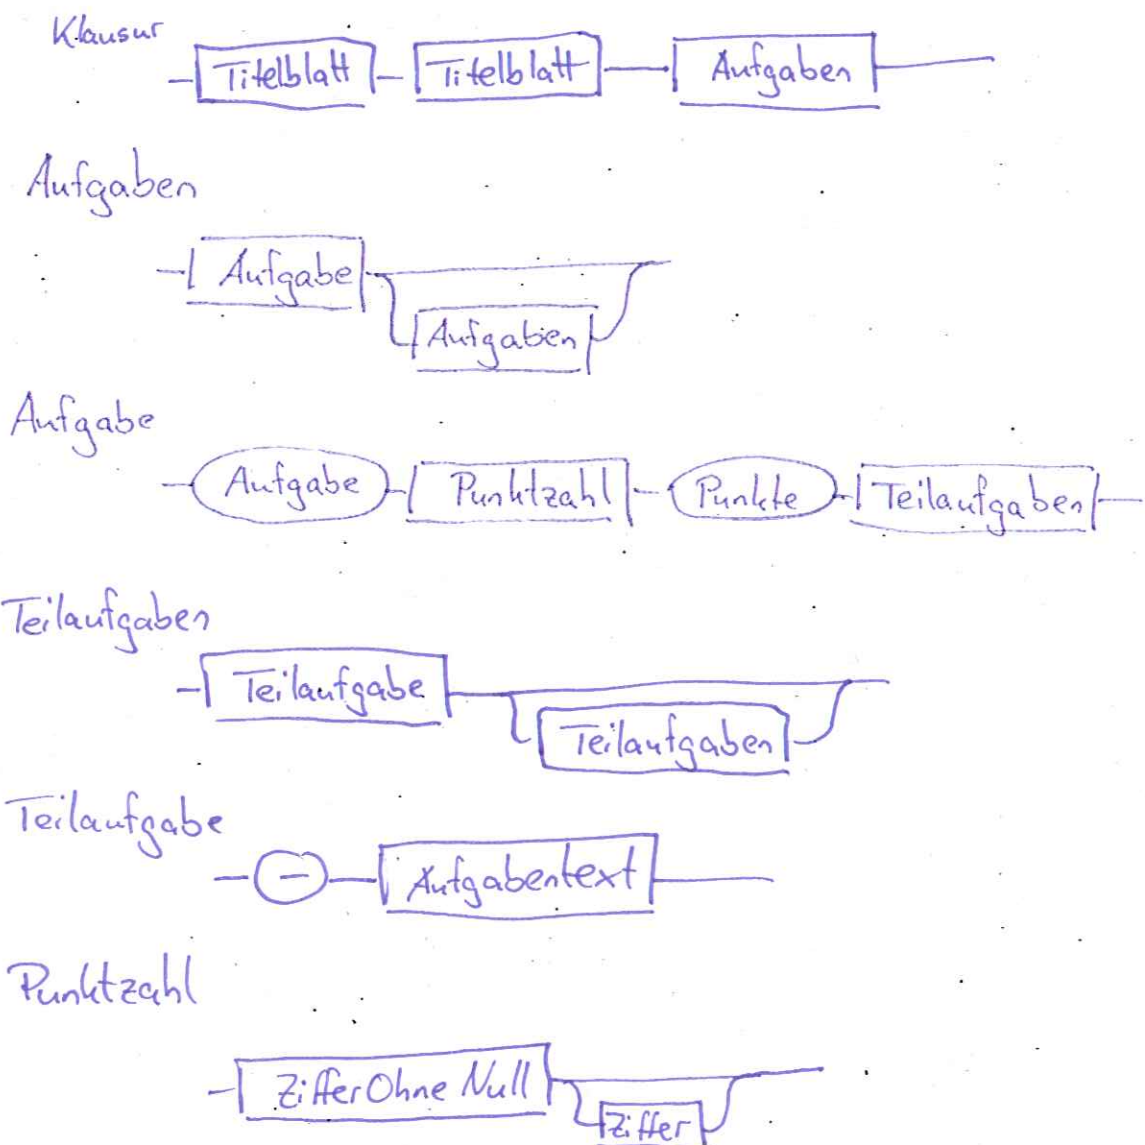 Klausur
Titelblatt Titelblatt Aufgaben
Aufgaben
Aufgabe
Aufgaben
Aufgabe
Aufgabe Punktzahl Punkte Teilaufgaben
Teilaufgaben
Teilaufgabe
Teilaufgaben
Teilaufgabe
- Aufgabentext
Punktzahl
ZifferOhneNull
Ziffer